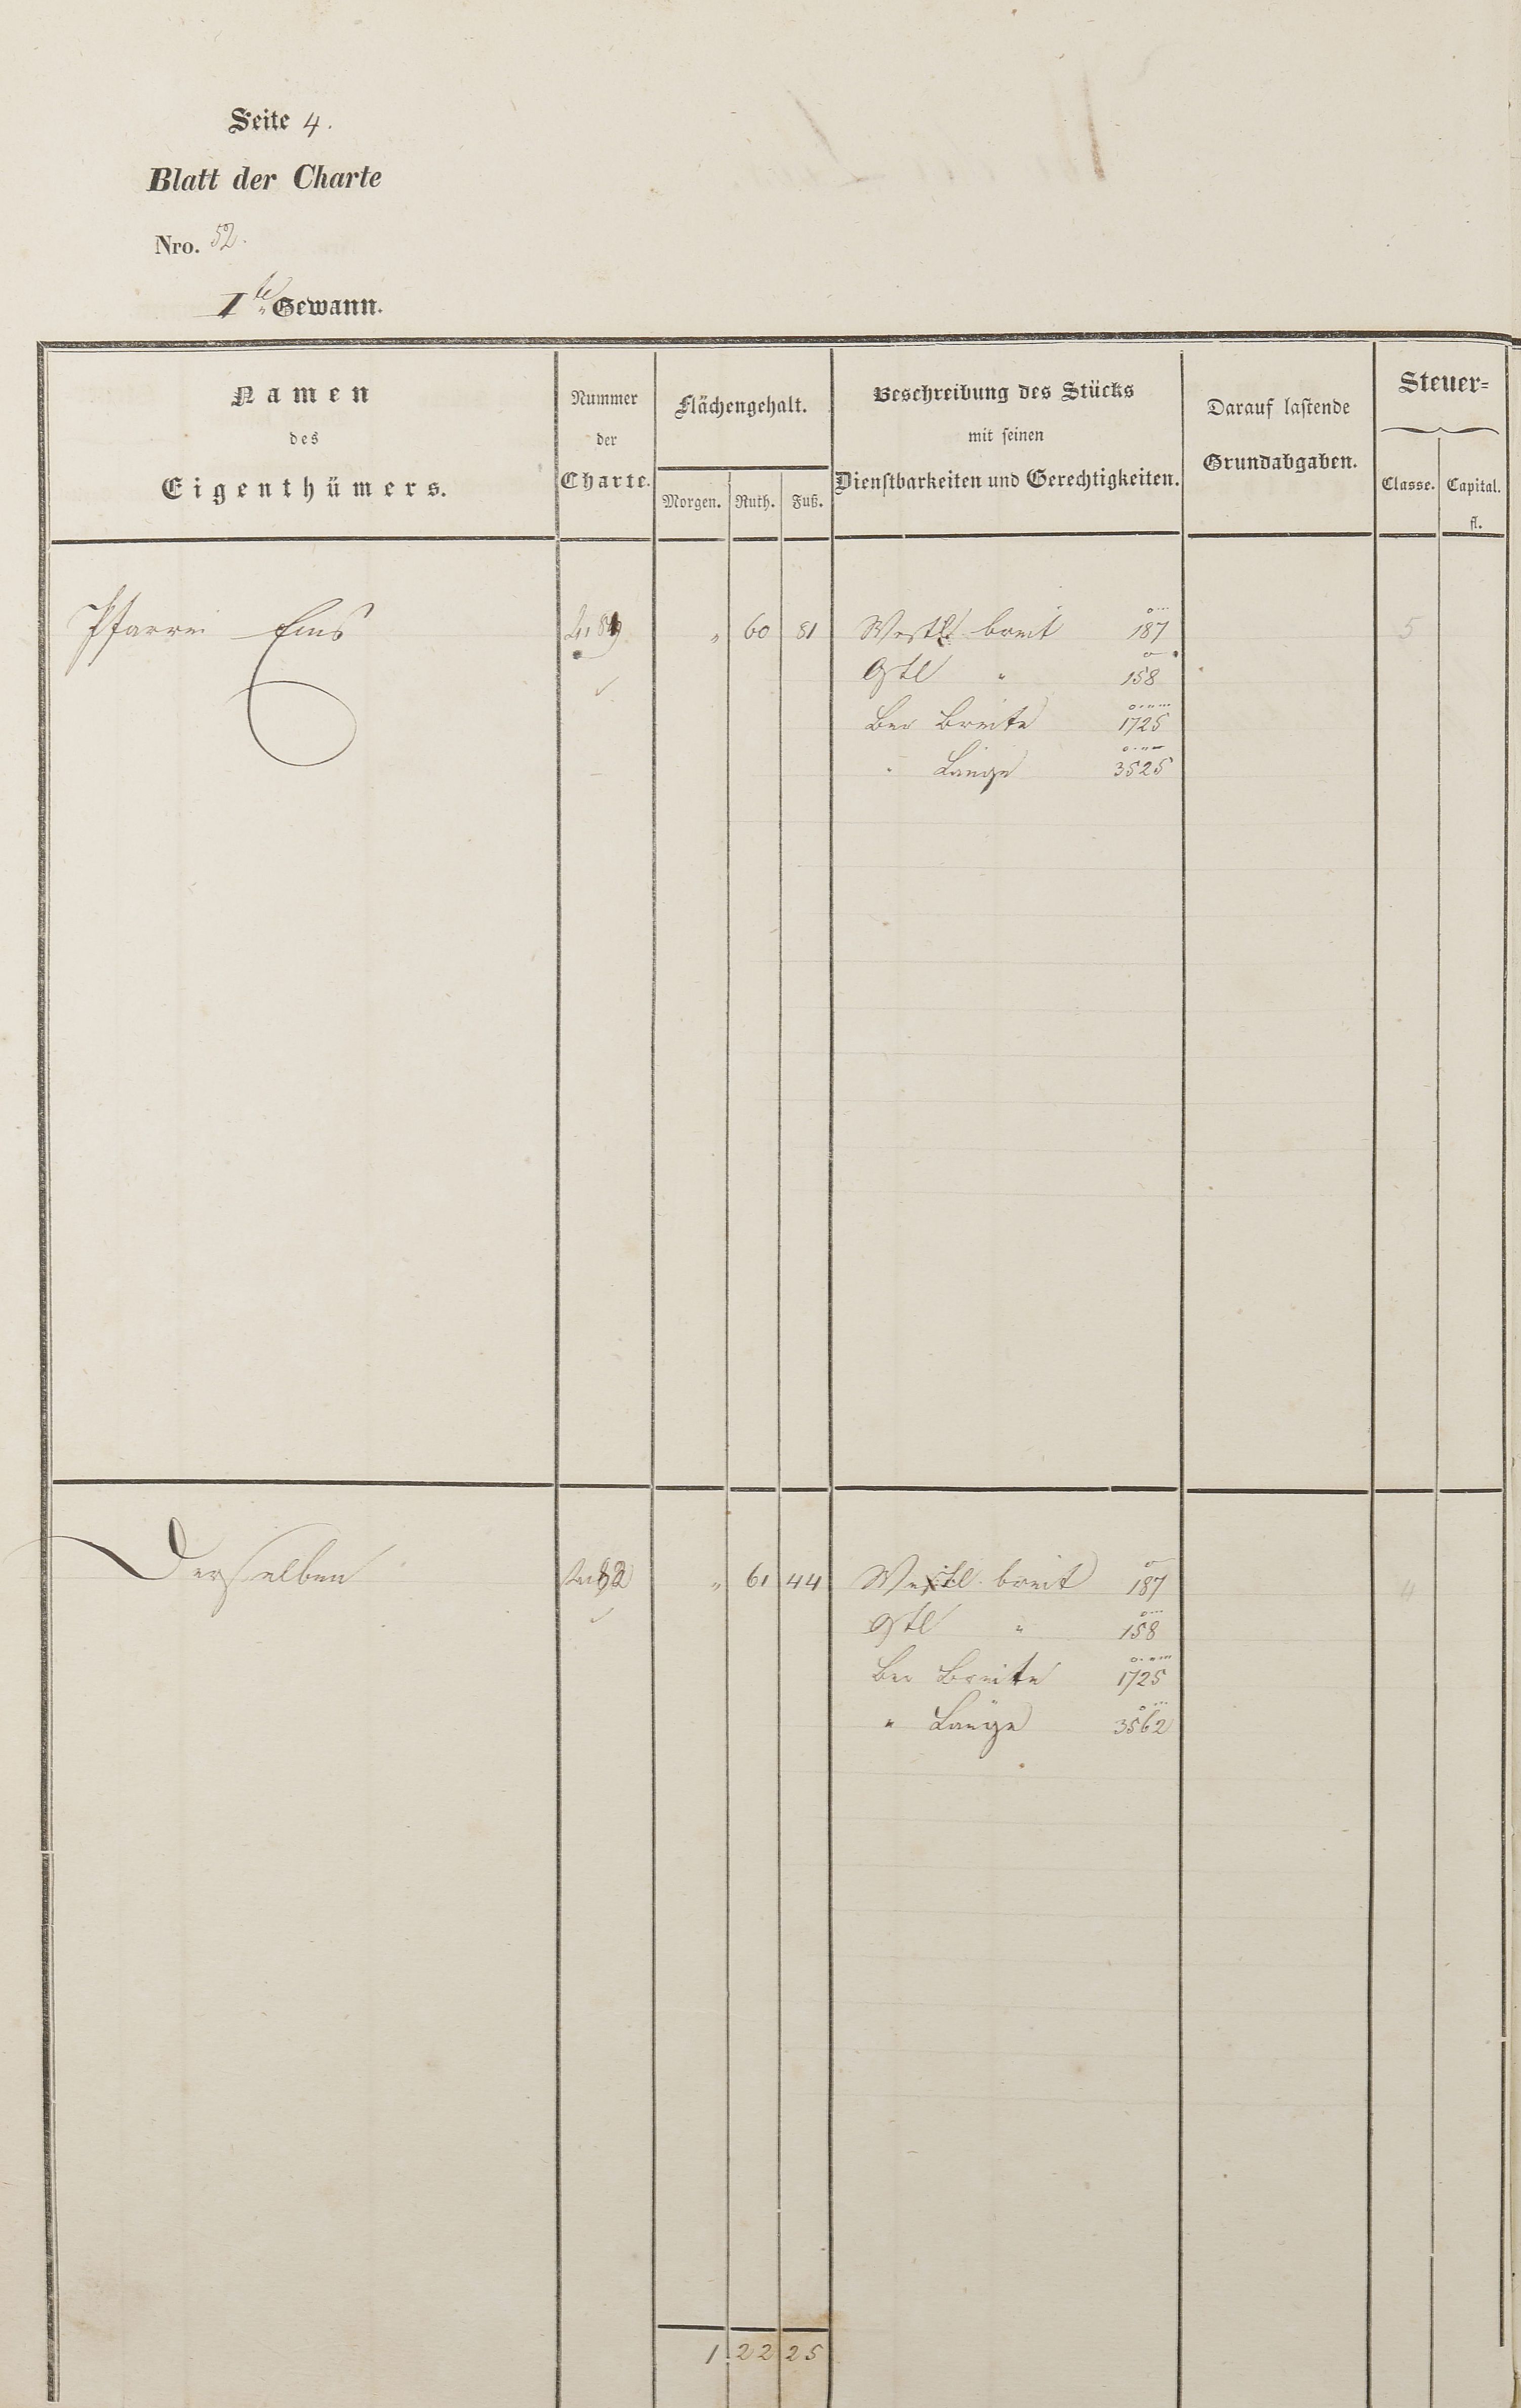 Seite 4.
Blatt der Charte
Nro. 52.
I te Gewann.
Namen
des
Eigenthümers.
Nummer
der
Charte.
Flächengehalt.
Morgen. Ruth. Fuß.
Beschreibung des Stücks
mit seinen
Dienstbarkeiten und Gerechtigkeiten.
Darauf lastende
Grundabgaben.
Steuer=
Classe. Capital.
fl.
Pfarrei Ems " 60 81 Westl. breit 187 5
Ostl " 158
Ber Breite 1725
" Länge 3525
Derselben " 61 44 Westl. breit 187 4
Ostl " 158
Ber Breite 1725
" Länge 3562
1 22 25